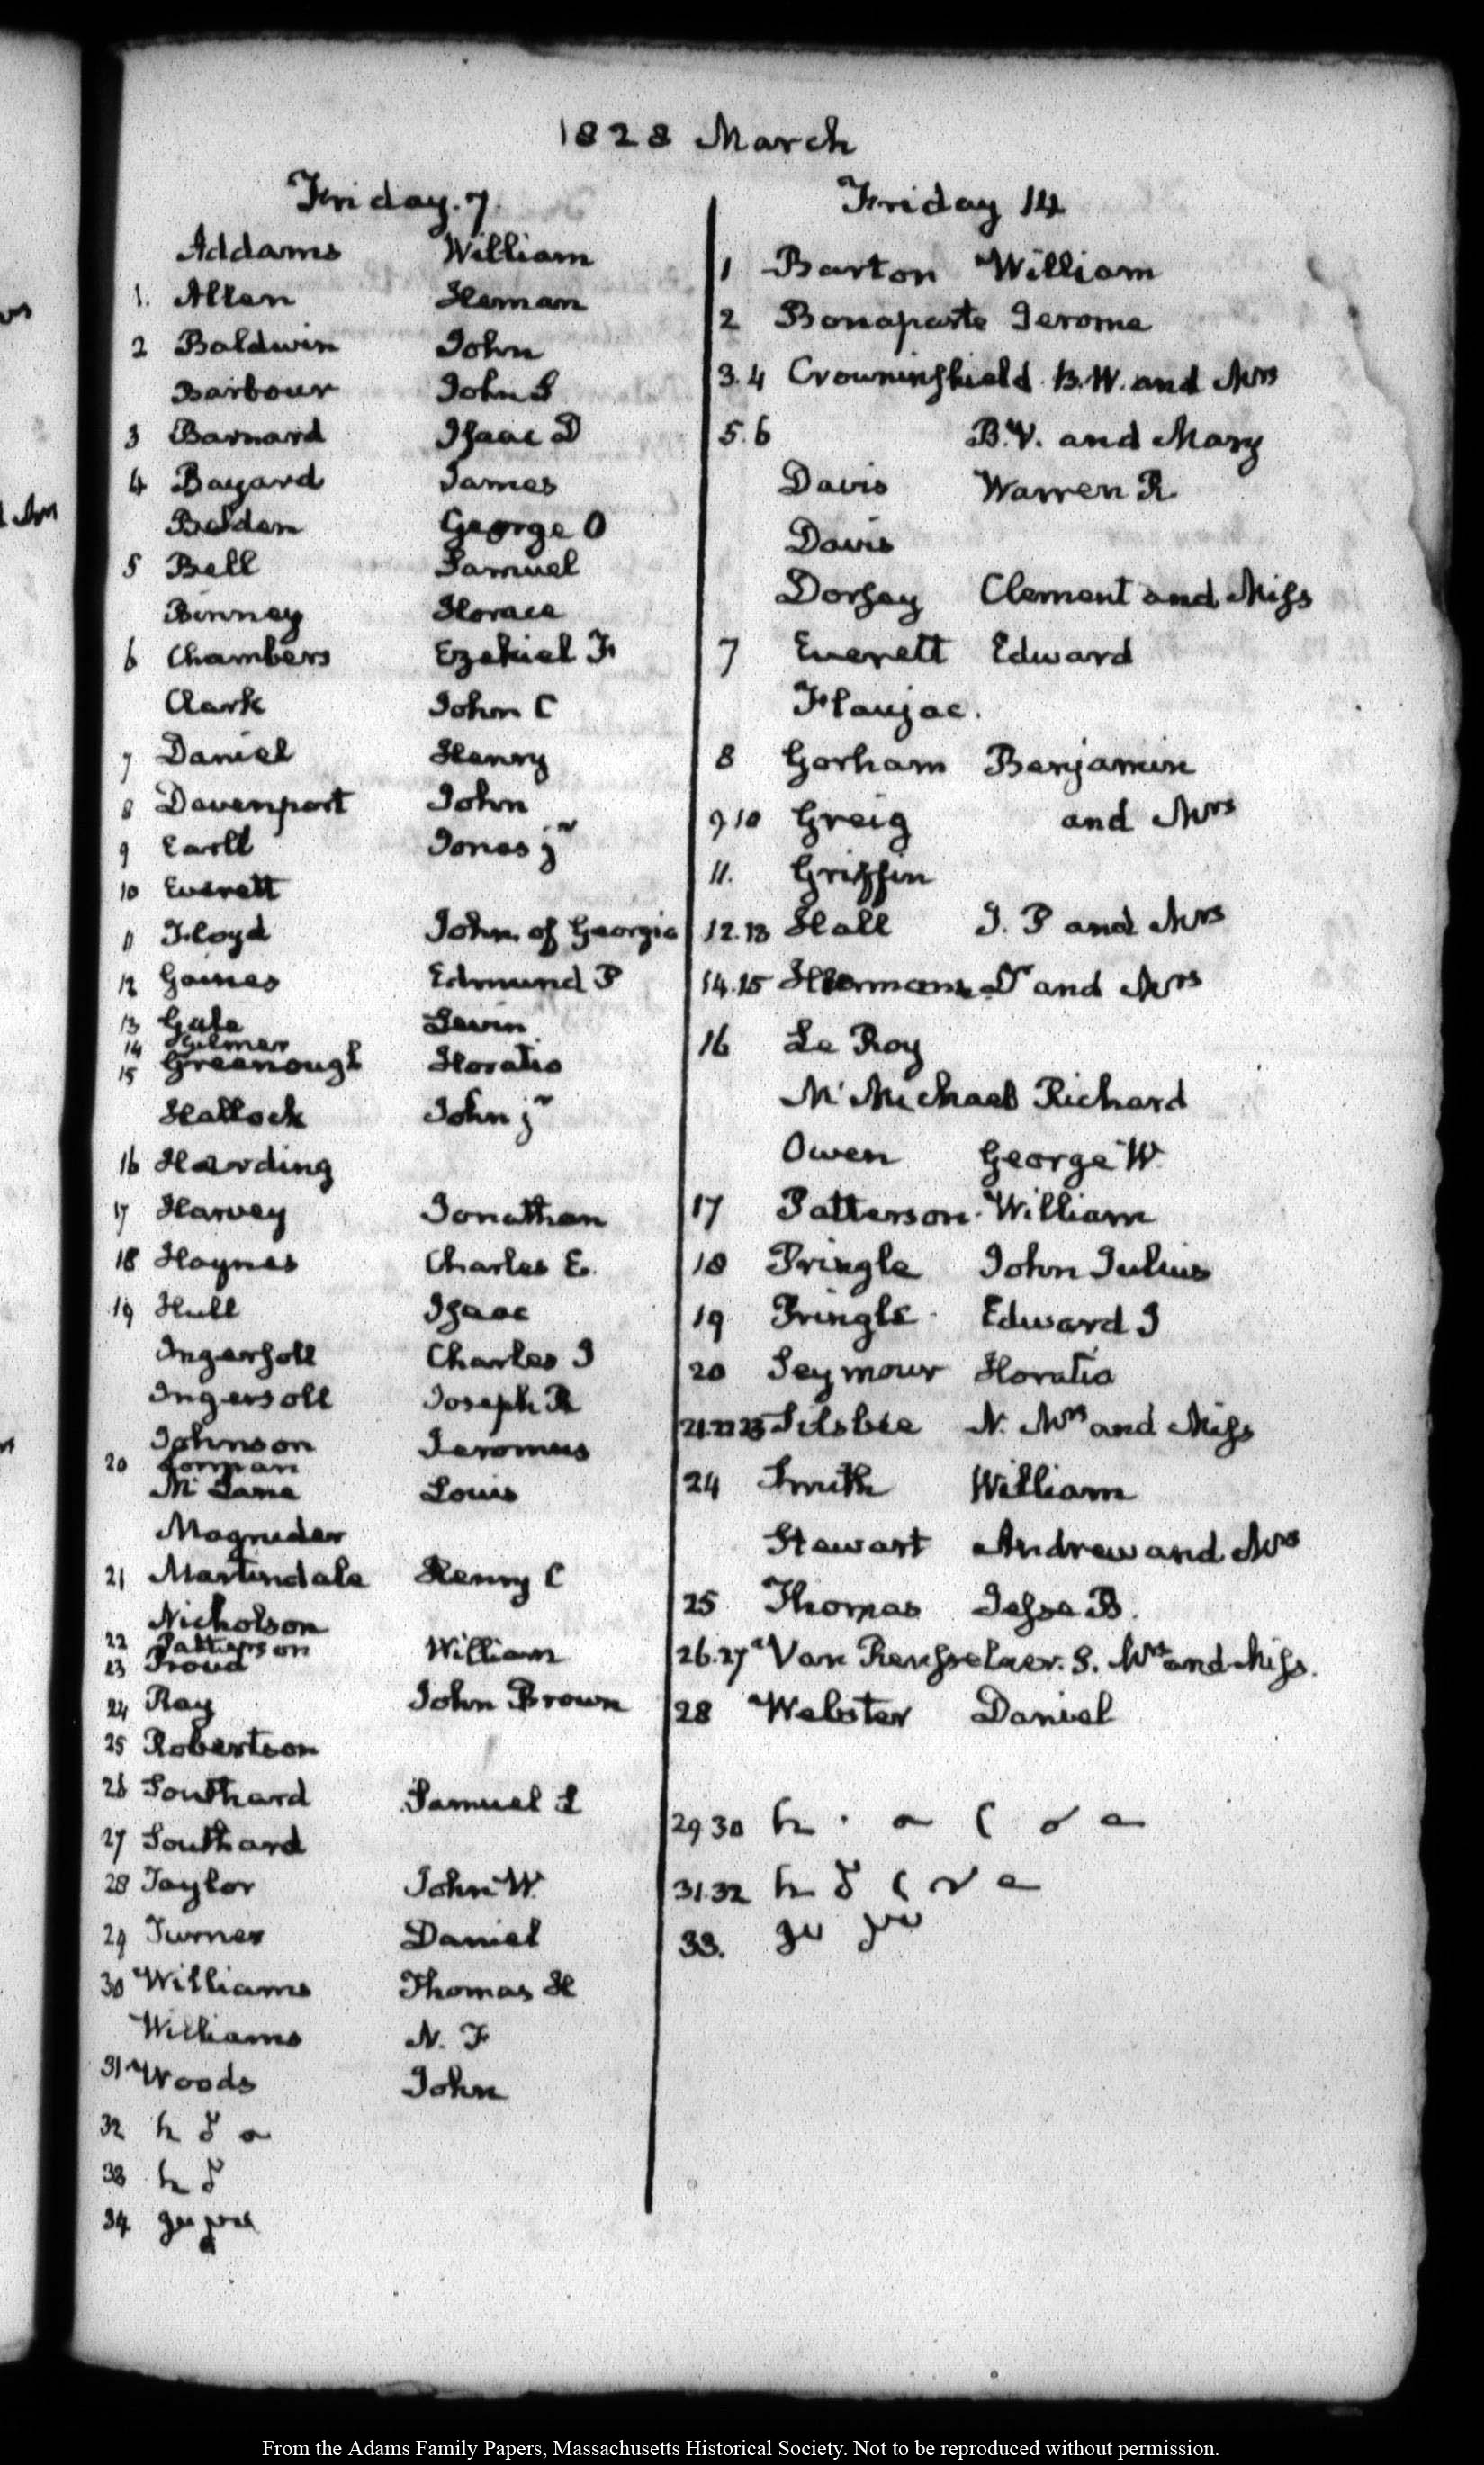 1828 March
Friday. 7.
Addams William
1. Allen Heman
2 Baldwin John
Barbour John S
3 Barnard Isaac D
4 Bayard James
Belden George O
5 Bell Samuel
Binney Horace
6 Chambers Ezekiel F
Clark John C
7 Daniel Henry
8 Davenport John
9 Earll Jonas jr
10 Everett
11 Floyd John of Georgia
12 Gaines Edmund P
13 Gale Levin
14 Gilmer
15 Greenough Horatio
Hallock John jr
16 Harding
17 Harvey Jonathan
18 Haynes Charles E.
19 Hull Isaac
Ingersoll Charles J
Ingersoll Joseph R
Johnson Jeromus
20 Lorman
Mc Lane Louis
Magruder
21 Martindale Henry C
Nicholson
22 Patterson William
23 Proud
24 Ray John Brown
25 Robertson
26 Southard Samuel L
27 Southard
28 Taylor John W.
29 Turner Daniel
30 Williams Thomas H
Williams N. F
31 Woods John
32
33
34
Friday 14
1 Barton William
2 Bonaparte Jerome
3.4 Crowninshield B.W. and Mrs
5.6 B.V. and Mary
Davis Warren R.
Davis
Dorsey Clement and Miss
7 Everett Edward
Flaujac.
8 Gorham Benjamin
9 10 Greig and Mrs
11. Griffin
12.13 Hall J. P and Mrs
14.15 and Mrs
16 Le Roy
Mc Michael Richard
Owen George W.
17 Patterson William
18 Pringle John Julius
19 Pringle Edward J
20 Seymour Horatio
21.22 23 Silsbee N. Mrs and Miss
24 Smith William
Stewart Andrew and Mrs
25 Thomas Jesse B.
26.27 Van Rensselaer. S. Mrs and Miss.
28 Webster Daniel
29 30
31.32
33.
From the Adams Family Papers, Massachusetts Historical Society. Not to be reproduced without permission.